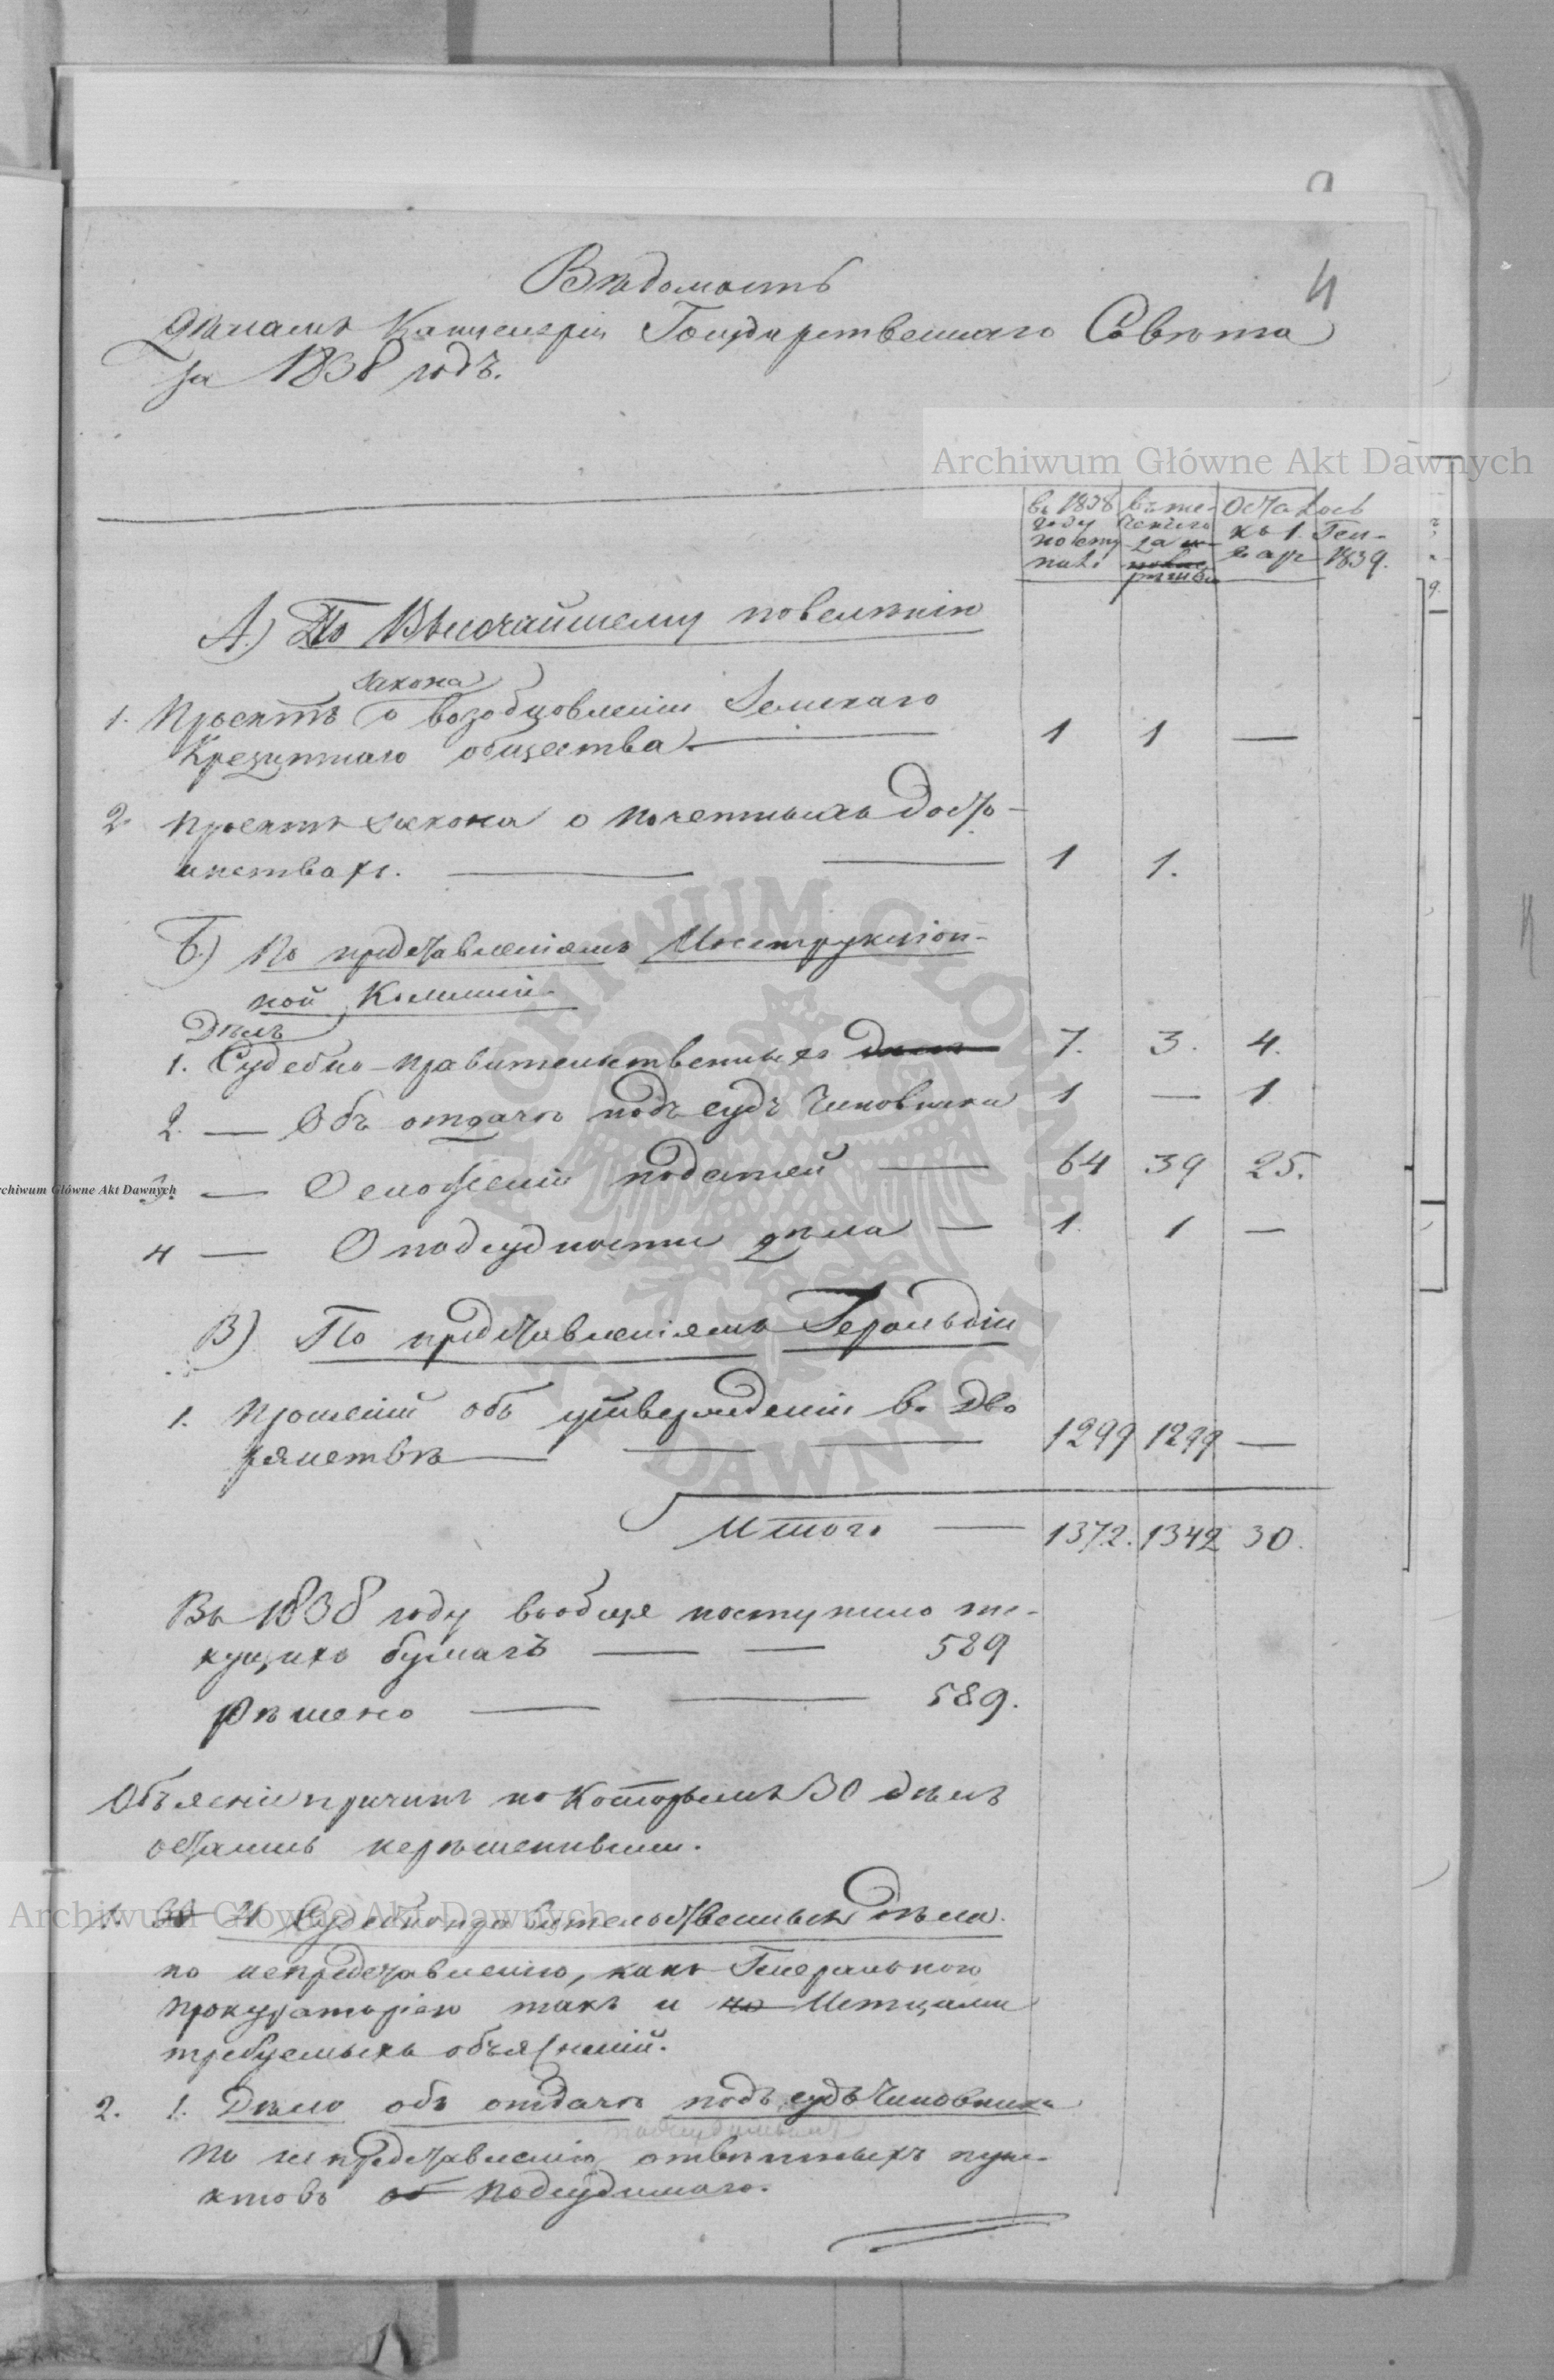 4
Вѣдомость
дѣламъ Канцеляріи Государственнаго Совѣта
за 1838 годъ.
Archiwum Główne Akt Dawnych
въ 1838 году поступи въ те- ченіе го да Осталось къ 1. Ген- варя 1839.
А.) По Высочайшему повелѣнію
закона
1. Проектъ о возобновленіи Земскаго
Кредитнаго общества. — 1 1 —
2 Проектъ закона о почетныхъ досто-
инствахъ. — — 1 1.
Б.) По представленіямъ Инструкціон-
ной Коммиссіи
Дѣлъ
1. Судебно-правительственныхъ дѣлъ 7. 3. 4.
2. — Объ отдачѣ подъ судъ Чиновника 1 — 1
3. — О сложеніи податей — 64 39 25.
4 — О подсудности дѣла — 1. 1 —
В) По представленіямъ Герольдіи
1. Прошеній объ утвержденіи въ Дво
рянствѣ — — — 1299 1299 —
Итого — 1372. 1342 30.
Въ 1838 году вообще поступило те-
кущихъ бумагъ — — 589
рѣшено — — 589.
Объясненіе причинъ по которымъ 30 дѣлъ
остались нерѣшенными.
Archiwum Główne Akt Dawnych
1. 4 Судебноправительственныхъ дѣла.
по непредставленію, какъ Генеральною
прокураторіею такъ и по Истцами
требуемыхъ объясненій.
2. 1. Дѣло объ отдачѣ подъ судъ Чиновника
по непредставленію отвѣтныхъ пун-
ктовъ подсудимаго.
ARCHIWUM GŁÓWNE AKT DAWNYCH
rchiwum Główne Akt Dawnych